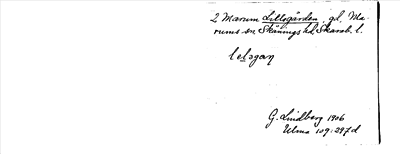 2 Marum Lillegården, gd, Ma-
rums sn Skånings hd Skarab. l.
G. Lindberg 1906
Ulma 109:297 d